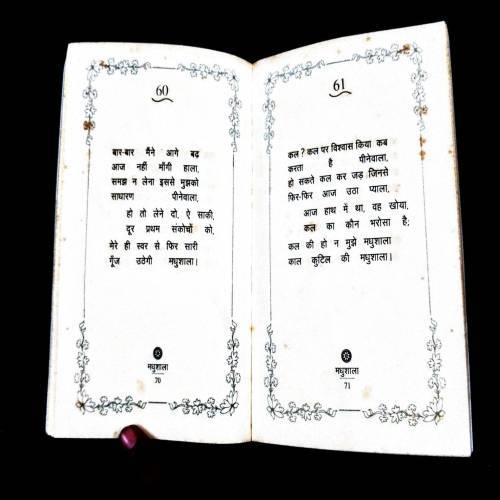 60
बार-बार मैंने आगे बढ़
आज नहीं माँगी हाला,
समझ न लेना इससे मुझको
साधारण पीनेवाला,
हो तो लेने दो, ऐ साकी,
दूर प्रथम संकोचों को,
मेरे ही स्वर से फिर सारी
गूँज उठेगी मधुशाला।
मधुशाला
70
61
कल ? कल पर विश्वास किया कब
करता है पीनेवाला,
हो सकते कल कर जड़ जिनसे
फिर-फिर आज उठा प्याला,
आज हाथ में था, वह खोया,
कल का कौन भरोसा है;
कल की हो न मुझे मधुशाला
काल कुटिल की मधुशाला।
मधुशाला
71